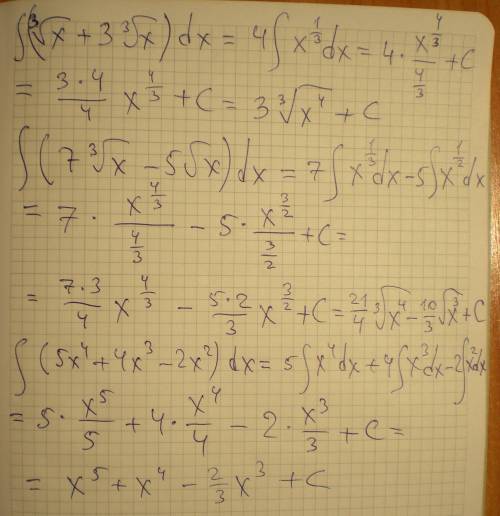 ∫(∛x + 3∛x)dx = 4∫x^(1/3)dx = 4·x^(4/3)/(4/3) + C
= (3·4)/4 x^(4/3) + C = 3∛(x^4) + C
∫(7∛x − 5√x)dx = 7∫x^(1/3)dx − 5∫x^(1/2)dx
= 7·x^(4/3)/(4/3) − 5·x^(3/2)/(3/2) + C =
= (7·3)/4 x^(4/3) − (5·2)/3 x^(3/2) + C = 21/4 ∛(x^4) − 10/3 √(x^3) + C
∫(5x^4 + 4x^3 − 2x^2)dx = 5∫x^4dx + 4∫x^3dx − 2∫x^2dx
= 5·x^5/5 + 4·x^4/4 − 2·x^3/3 + C =
= x^5 + x^4 − 2/3 x^3 + C